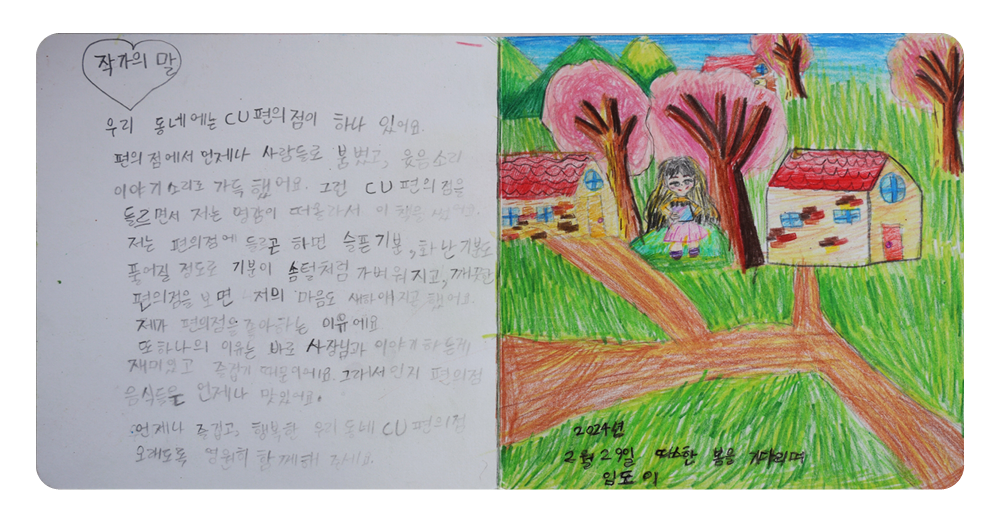 작가의 말
우리 동네에는 CU편의점이 하나 있어요.
편의점에서 언제나 사람들로 붐볐고, 웃음소리
이야기소리로 가득 했어요. 그런 CU편의점을
들르면서 저는 영감이 떠올라서 이 책을 썼어요.
저는 편의점에 들르곤 하면 슬픈기분, 화난기분도
풀어질 정도로 기분이 솜털처럼 가벼워지고, 깨끗한
편의점을 보면 저의 마음도 새파래지곤 했어요.
제가 편의점을 좋아하는 이유에요
또하나의 이유는 바로 사장님과 이야기하는게
재미있고 즐겁기 때문이에요. 그래서인지 편의점
음식들은 언제나 맛있어요.
언제나 즐겁고, 행복한 우리동네 CU편의점
오래도록 영원히 함께해 주세요.
2024년
2월 29일 따스한 봄을 기다리며
임도이